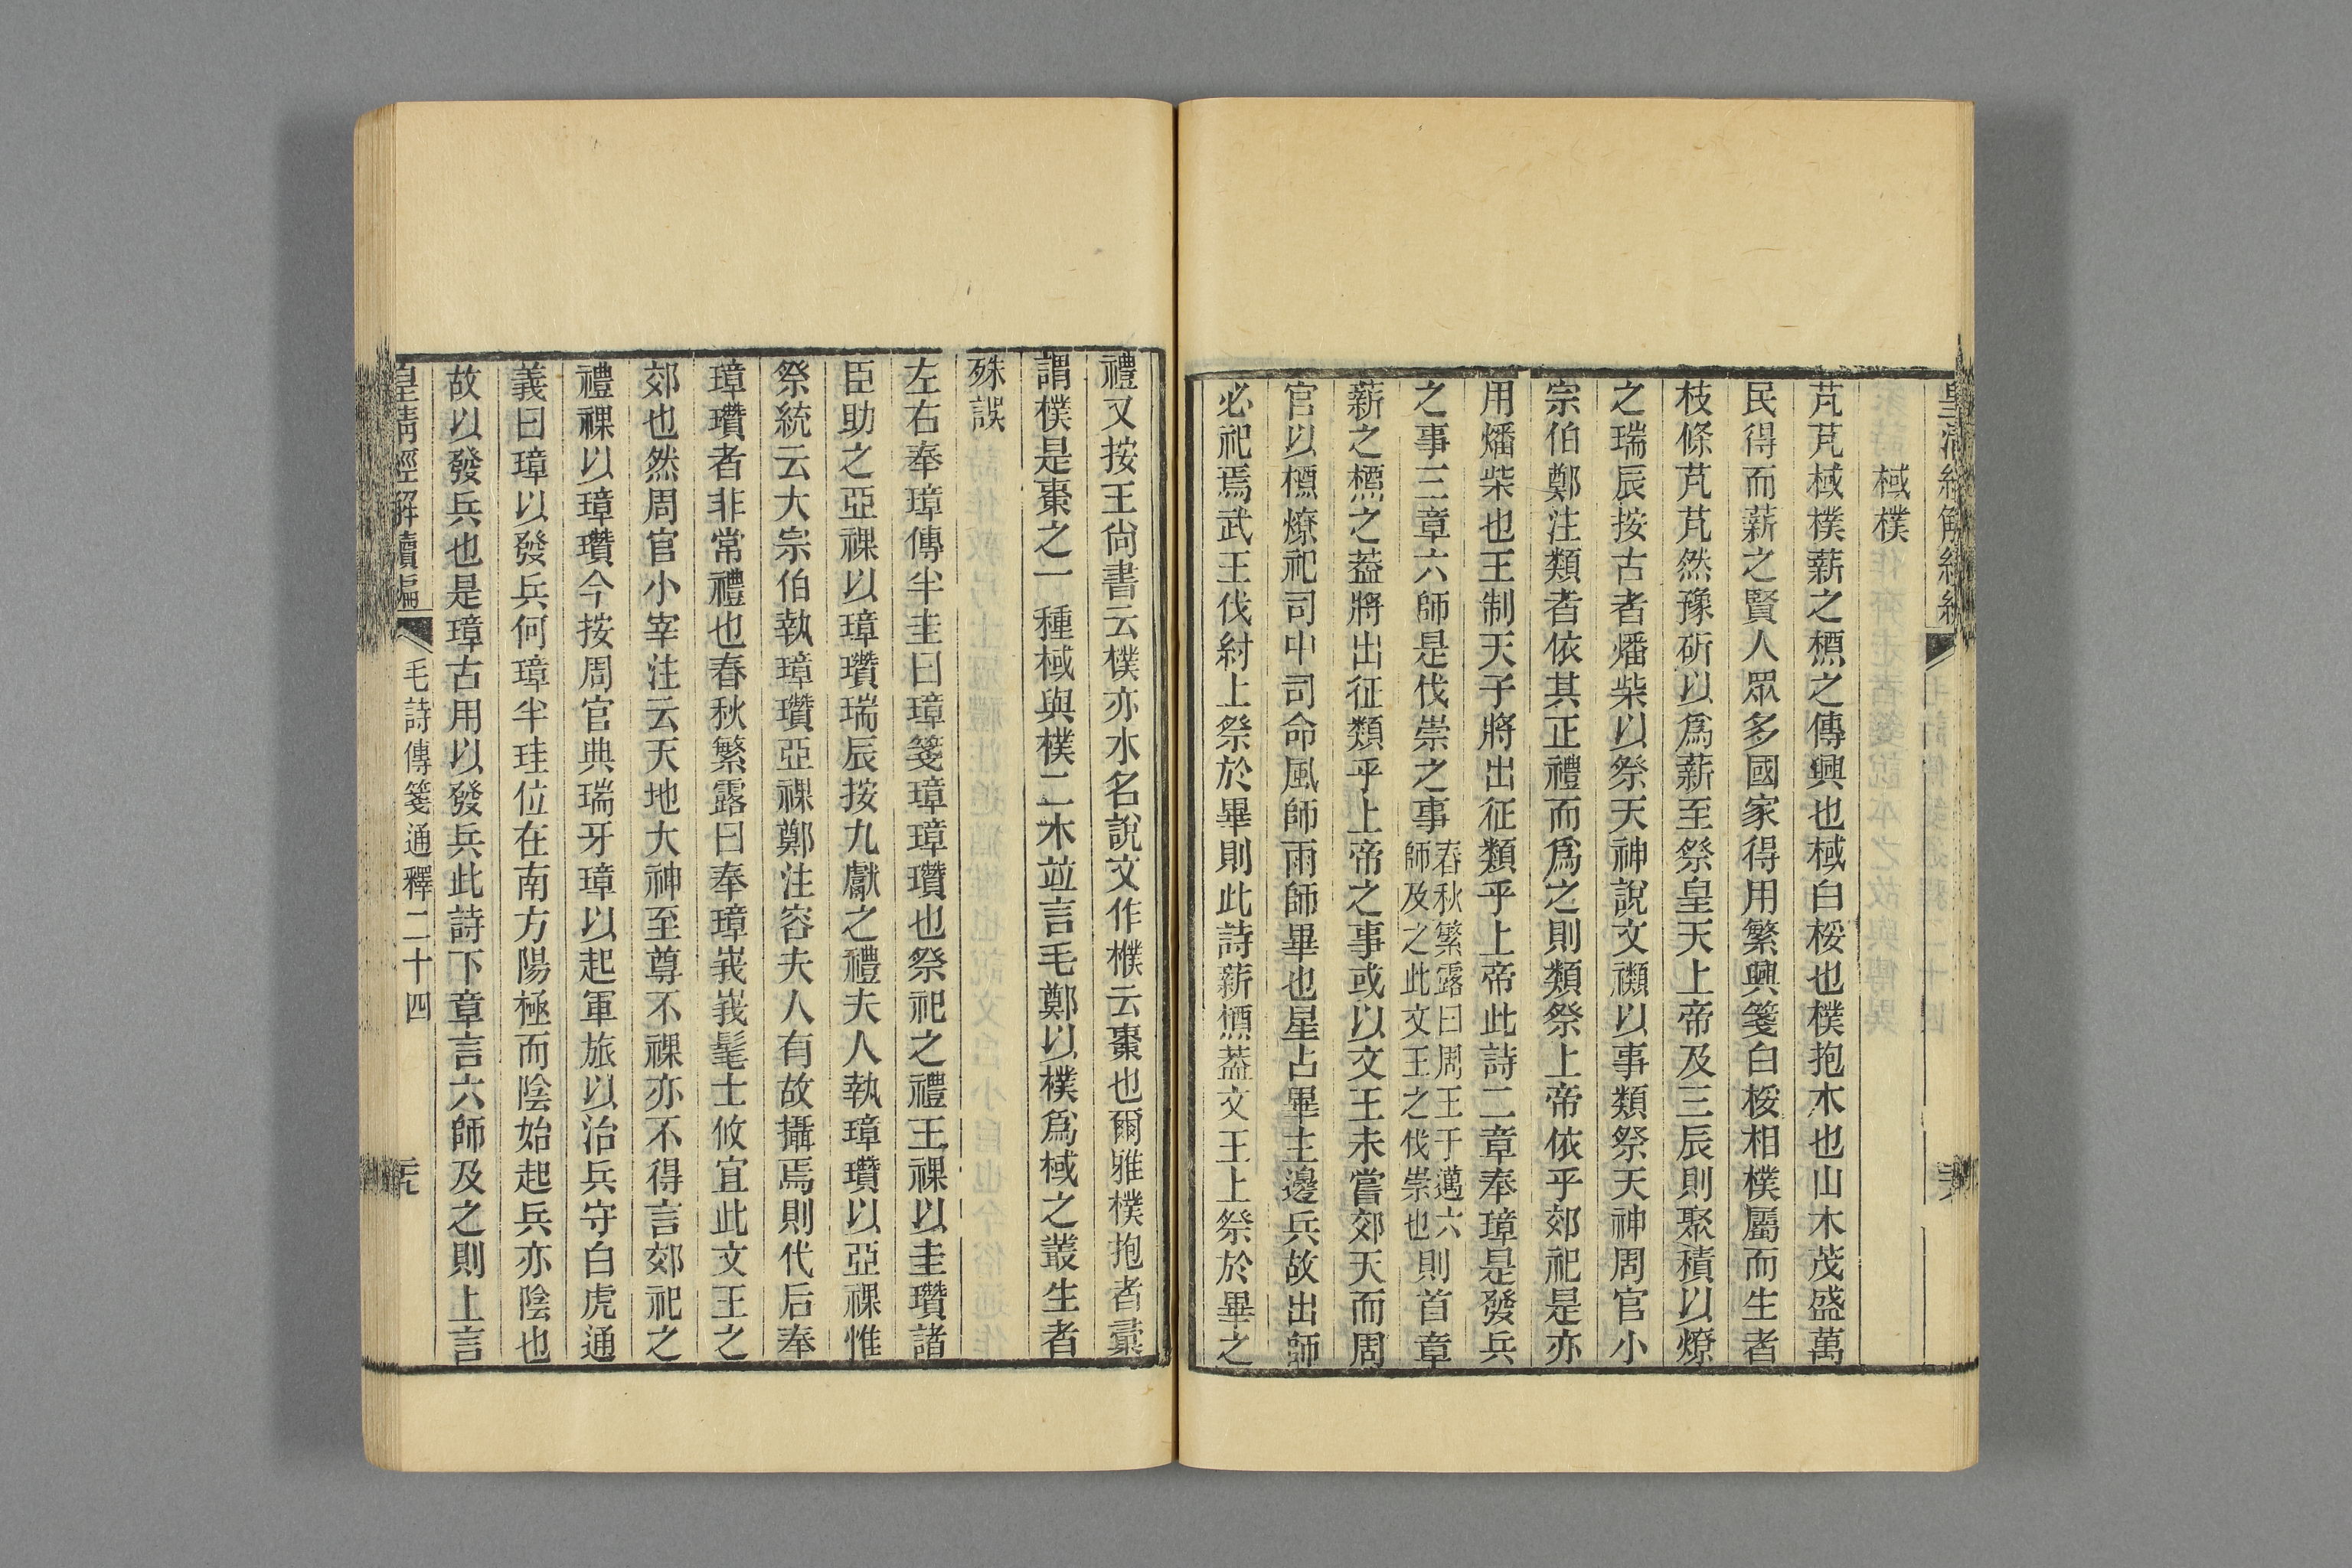 棫樸
芃芃棫樸薪之槱之傳興也棫白桵也樸抱木也山木茂盛萬
民得而薪之賢人眾多國家得用繁興箋白桵相樸屬而生者
枝條芃芃然豫斫以爲薪至祭皇天上帝及三辰則聚積以燎
之瑞辰按古者燔柴以祭天神說文禷以事類祭天神周官小
宗伯鄭注類者依其正禮而爲之則類祭上帝依乎郊祀是亦
用燔柴也王制天子將出征類乎上帝此詩二章奉璋是發兵
之事三章六師是伐崇之事春秋繁露曰周王于邁六師及之此文王之伐崇也則首章
薪之槱之葢將出征類乎上帝之事或以文王未嘗郊天而周
官以槱燎祀司中司命風師雨師畢也星占畢主邊兵故出師
必祀焉武王伐紂上祭於畢則此詩薪槱葢文王上祭於畢之
禮又按王尙書云樸亦木名說文作樕云棗也爾雅樸抱者彙
謂樸是棗之一種棫與樸二木竝言毛鄭以樸爲棫之叢生者
殊誤
左右奉璋傳半圭曰璋箋璋璋瓚也祭祀之禮王祼以圭瓚諸
臣助之亞祼以璋瓚瑞辰按九獻之禮夫人執璋瓚以亞祼惟
祭統云大宗伯執璋瓚亞祼鄭注容夫人有故攝焉則代后奉
璋瓚者非常禮也春秋繁露曰奉璋峩峩髦士攸宜此文王之
郊也然周官小宰注云天地大神至尊不祼亦不得言郊祀之
禮祼以璋瓚今按周官典瑞牙璋以起軍旅以治兵守白虎通
義曰璋以發兵何璋半珪位在南方陽極而陰始起兵亦陰也
故以發兵也是璋古用以發兵此詩下章言六師及之則上言
皇淸經解續編 毛詩傳箋通釋二十四